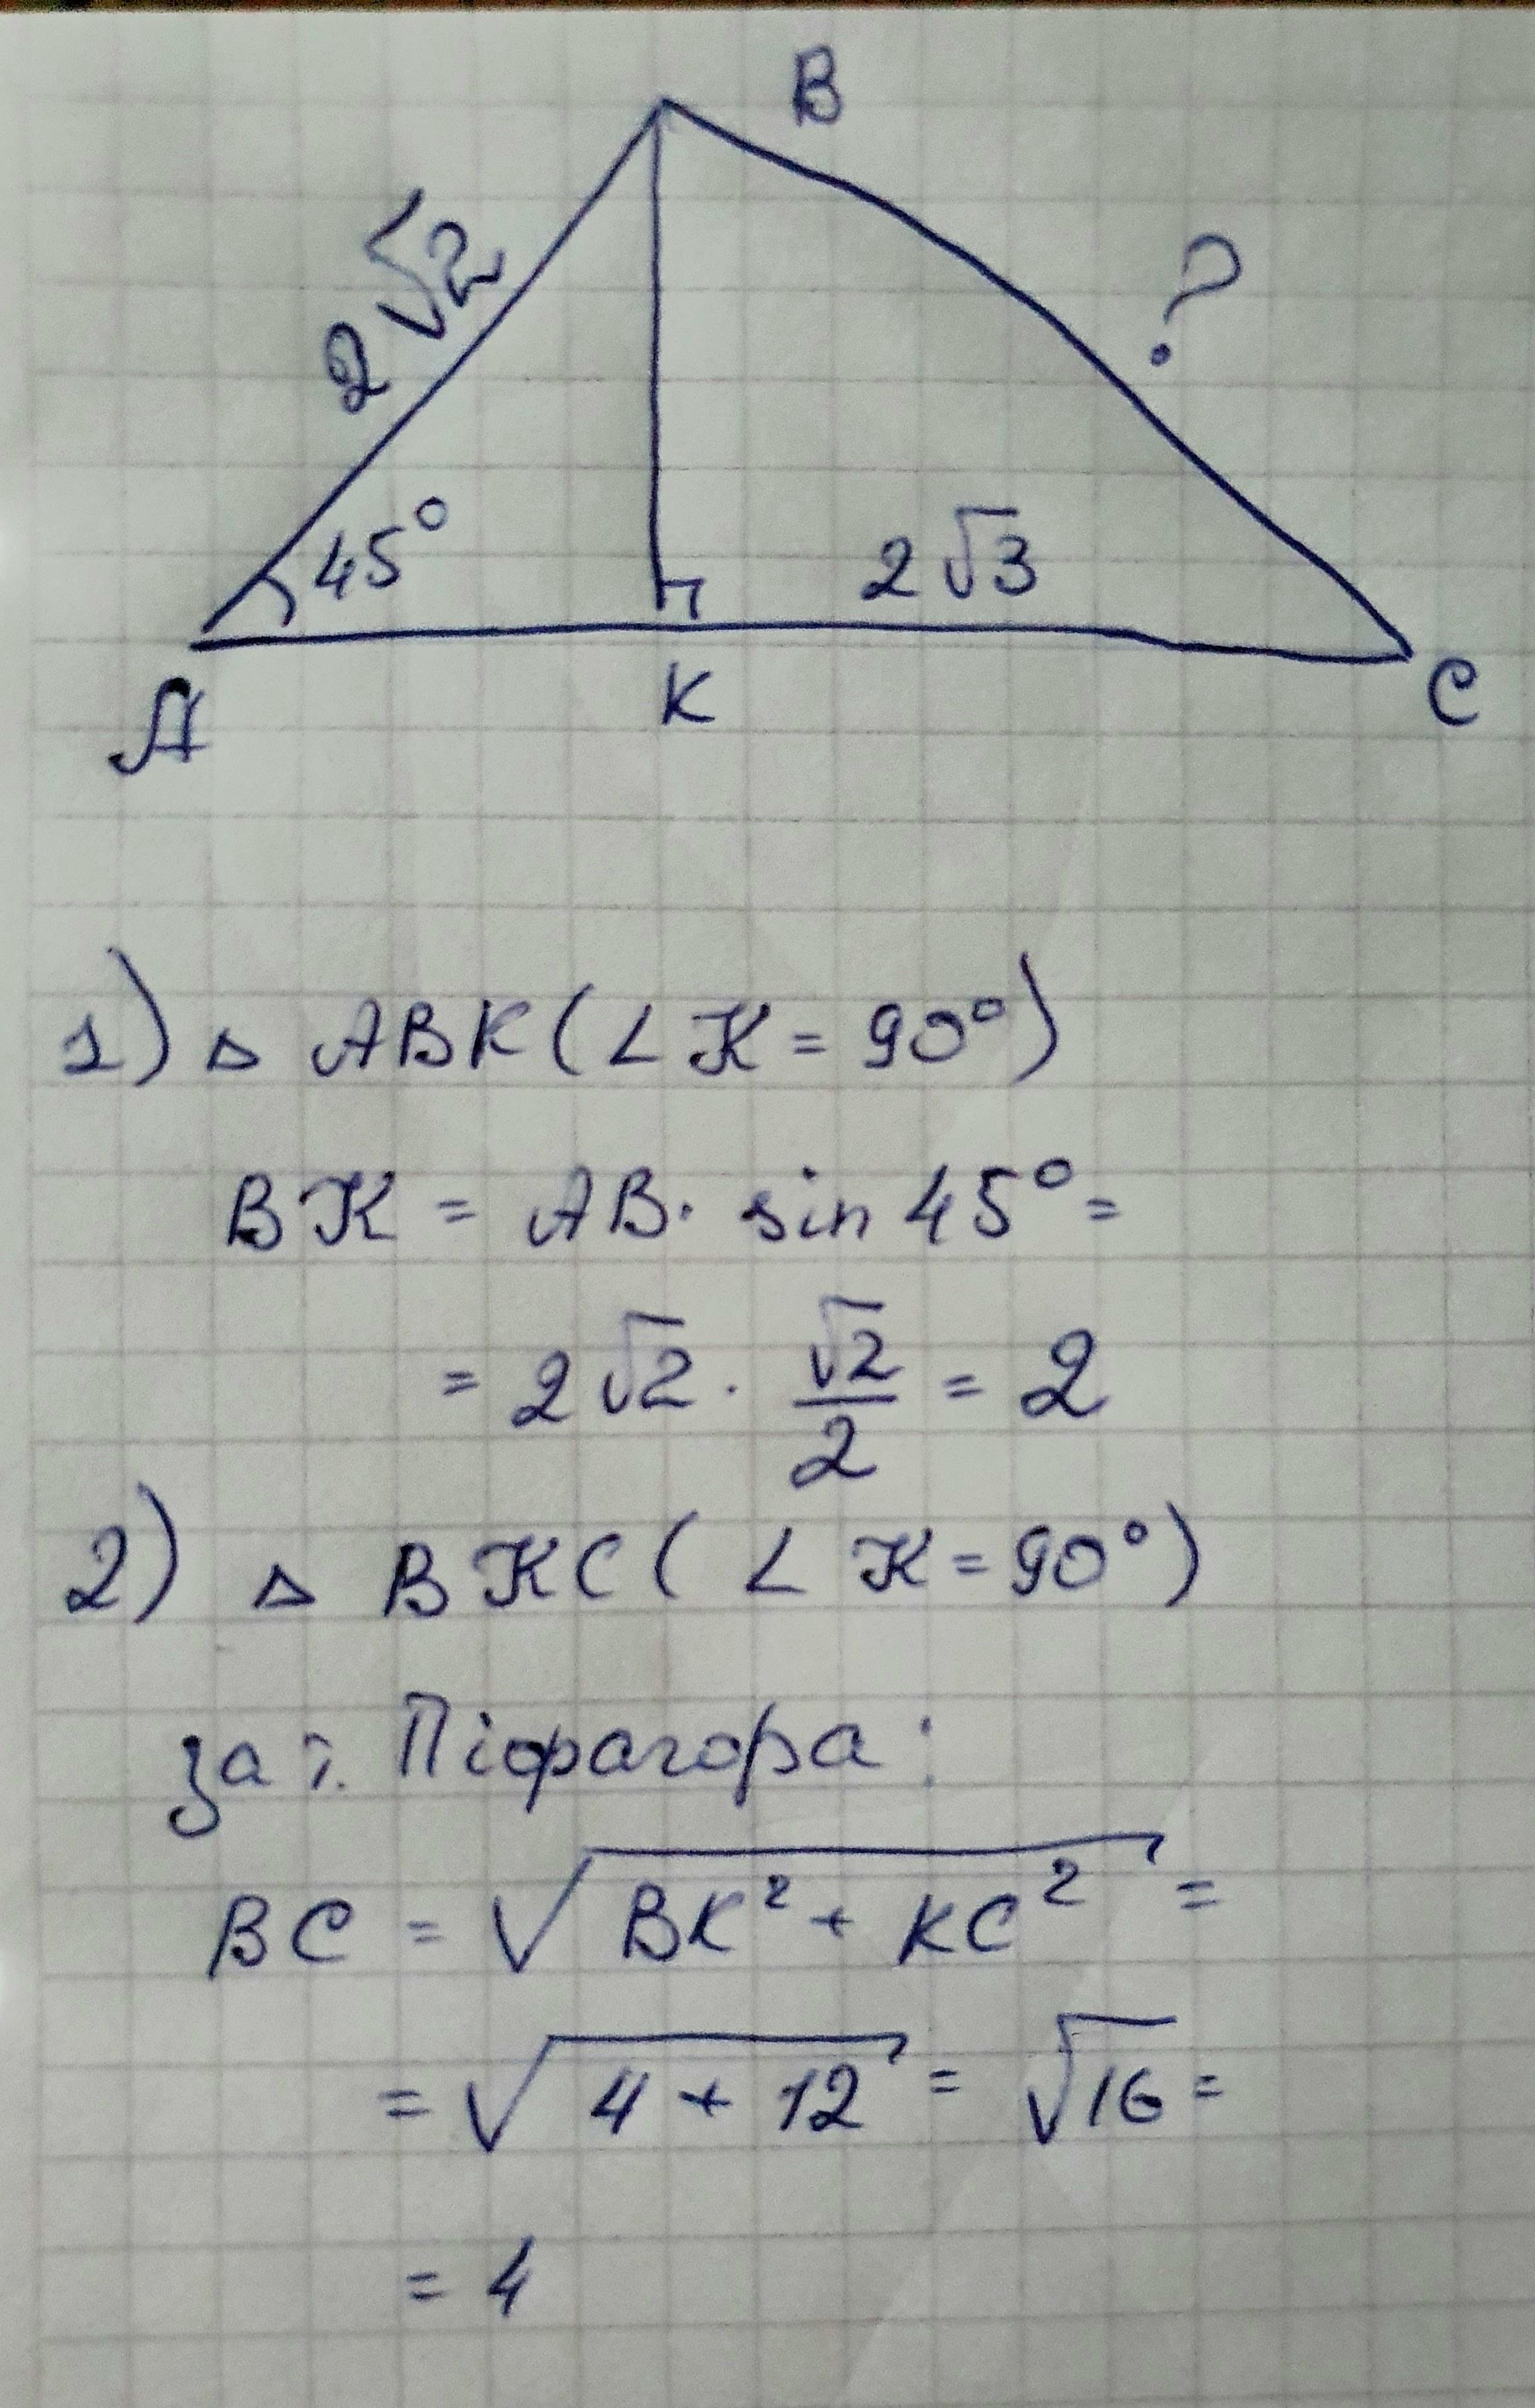 B
2√2
?
45°
2√3
A
K
C
1) △ ABK (∠ K = 90°)
BK = AB · sin 45° =
= 2√2 · √2/2 = 2
2) △ BKC (∠ K = 90°)
за т. Піфагора:
BC = √(BK² + KC²) =
= √(4 + 12) = √16 =
= 4